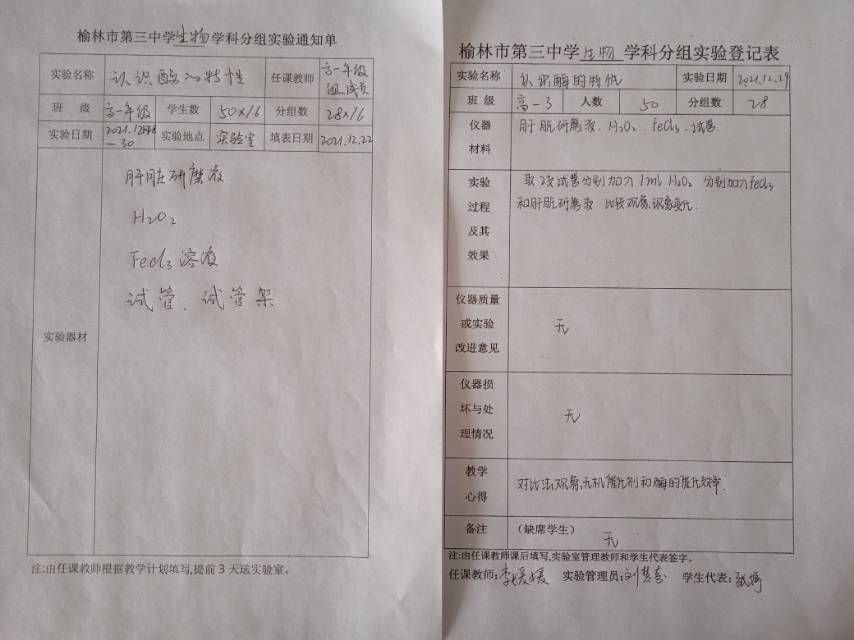 榆林市第三中学生物学科分组实验通知单
实验名称 认识酶的特性 任课教师 高一年级组成员
班 级 高一年级 学生数 50×16 分组数 28×16
实验日期 2021.12 —30 实验地点 实验室 填表日期 2021.12.22
实验器材
肝脏研磨液
H2O2
Fecl3溶液
试管、试管架
注:由任课教师根据教学计划填写,提前3天送实验室。
榆林市第三中学生物学科分组实验登记表
实验名称 认识酶的特性 实验日期 2021.12.29
班 级 高一3 人数 50 分组数 28
仪器
材料
肝脏研磨液、H2O2、Fecl3、试管
实验
过程
及其
效果
取2支试管分别加入1ml H2O2 分别加入Fecl3
和肝脏研磨液 比较观察现象变化.
仪器质量
或实验
改进意见
无
仪器损
坏与处
理情况
无
教学
心得
对比法观察无机催化剂和酶的催化效率.
备注 (缺席学生) 无
注:由任课教师课后填写,实验室管理教师和学生代表签字。
任课教师:李媛媛 实验管理员: 学生代表: